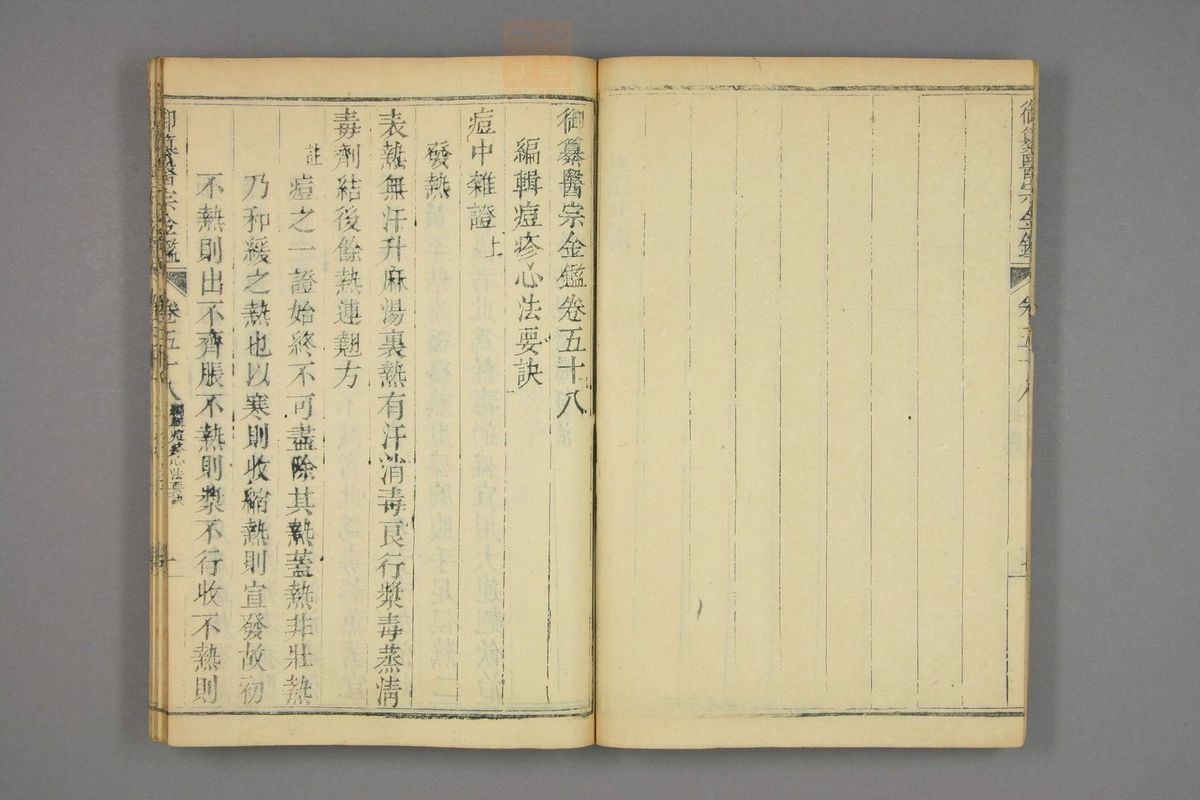 御纂醫宗金鑑
御纂醫宗金鑑卷五十八
編輯痘疹心法要訣
痘中雜證上
發熱
表熱無汗升麻湯裏熱有汗消毒良行漿毒蒸清
毒劑結後餘熱連翹方
註
痘之一證始終不可盡除其熱蓋熱非壯熱
乃和緩之熱也以寒則收縮熱則宣發故初
不熱則出不齊脹不熱則漿不行收不熱則
御纂醫宗金鑑
卷五十八
編輯痘疹心法要訣
一